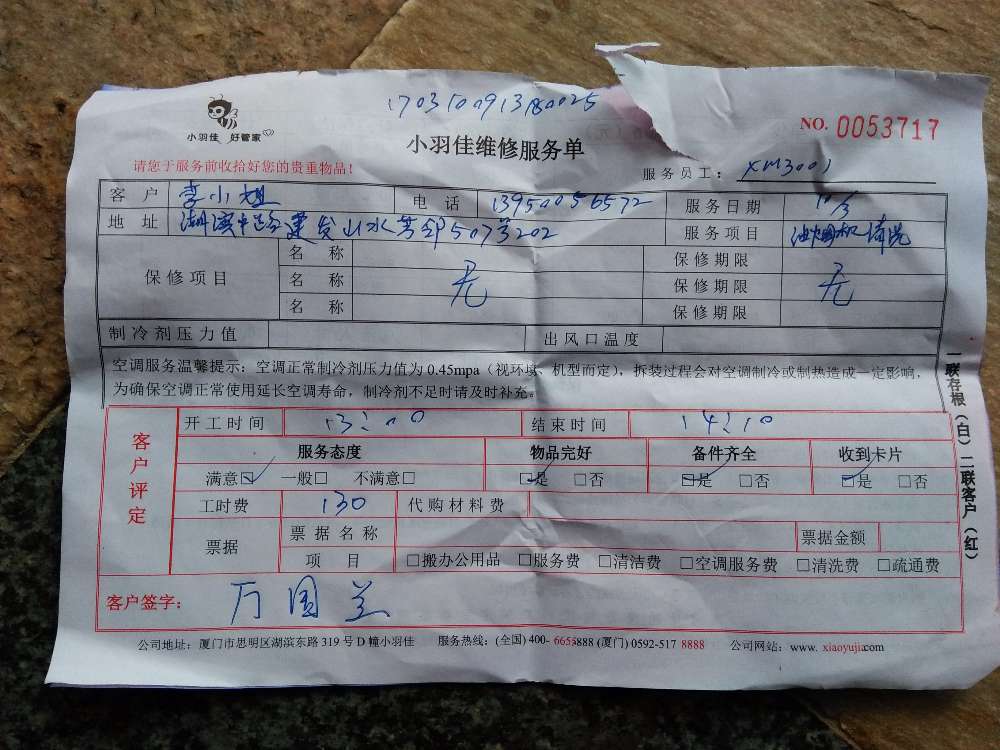 170310091380025
小羽佳 好管家
小羽佳维修服务单
NO. 0053717
请您于服务前收拾好您的贵重物品！
服务员工： XM3001
客户 李小姐 电话 13950056572 服务日期 10/3
地址 湖滨中路建发山水芳邻507号202 服务项目 油烟机清洗
保修项目 名称 无 保修期限 无
名称 保修期限
名称 保修期限
制冷剂压力值 出风口温度
空调服务温馨提示：空调正常制冷剂压力值为 0.45mpa（视环境、机型而定），拆装过程会对空调制冷或制热造成一定影响，
为确保空调正常使用延长空调寿命，制冷剂不足时请及时补充。
一联存根（白）二联客户（红）
客户评定
开工时间 13:00 结束时间 14:10
服务态度 物品完好 备件齐全 收到卡片
满意☑ 一般□ 不满意□ ☑是 □否 ☑是 □否 ☑是 □否
工时费 130 代购材料费
票据 票据名称 票据金额
项目 □搬办公用品 □服务费 □清洁费 □空调服务费 □清洗费 □疏通费
客户签字： 万国兰
公司地址：厦门市思明区湖滨东路 319 号 D 幢小羽佳 服务热线：(全国) 400- 6653888 (厦门) 0592-517 8888 公司网站：www. xiaoyujia.com